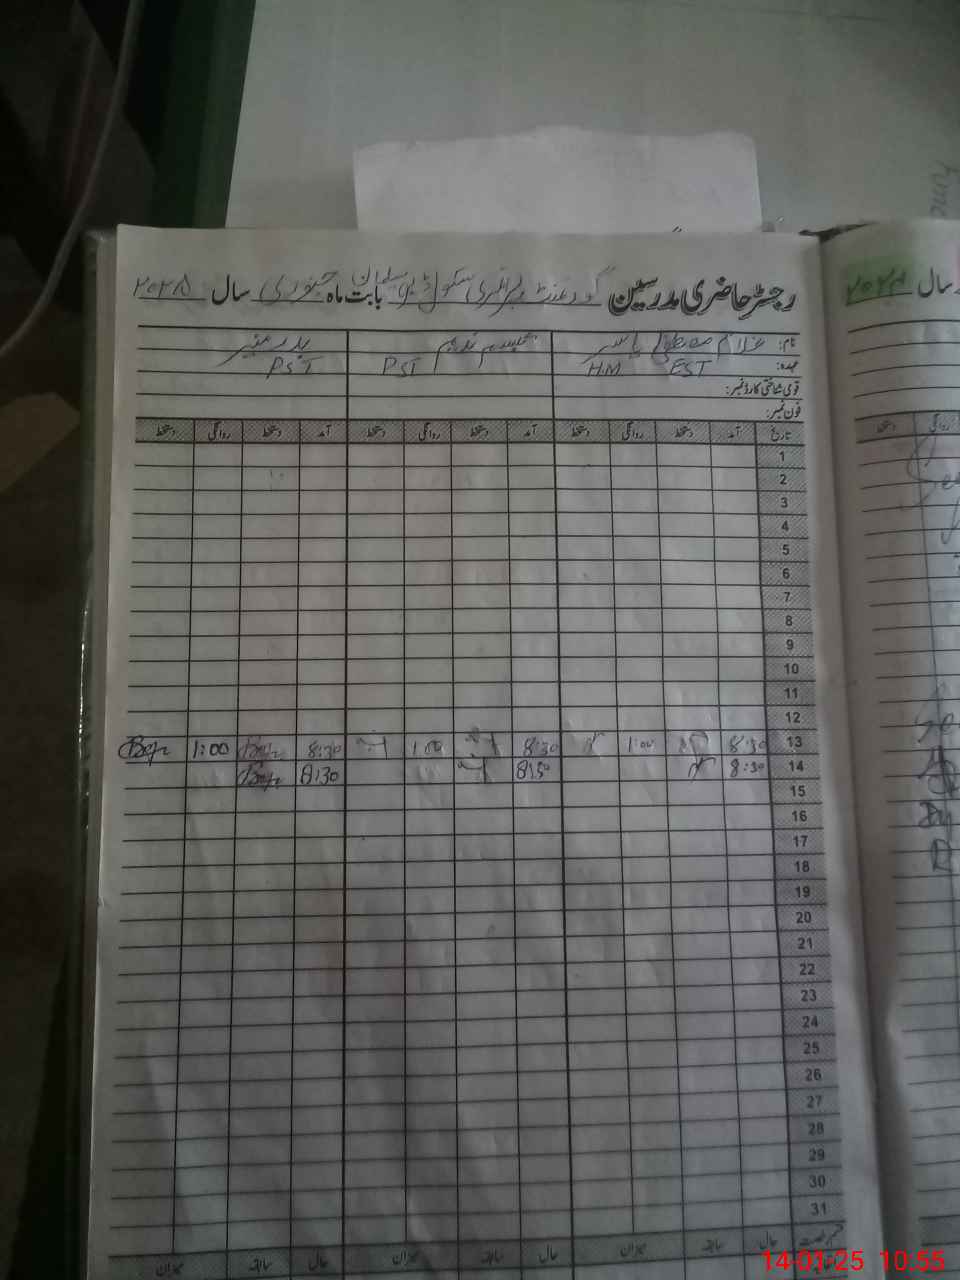 رجسٹر حاضری مدرسین گورنمنٹ پرائمری سکول بابت ماہ جنوری سال ۲۰۲۵
نام: غلام مصطفیٰ یاسر ندیم بدر منیر
عہدہ: HM EST PST PST
قومی شناختی کارڈ نمبر:
فون نمبر:
تاریخ آمد دستخط روانگی دستخط آمد دستخط روانگی دستخط آمد دستخط روانگی دستخط
1
2
3
4
5
6
7
8
9
10
11
12
13 8:30 1:00 8:30 1:00 8:30 1:00
14 8:30 8:30 8:30
15
16
17
18
19
20
21
22
23
24
25
26
27
28
29
30
31
حال سابقہ میزان حال سابقہ میزان حال سابقہ میزان
سال ۲۰۲۴
روانگی دستخط
14-01-25 10:55